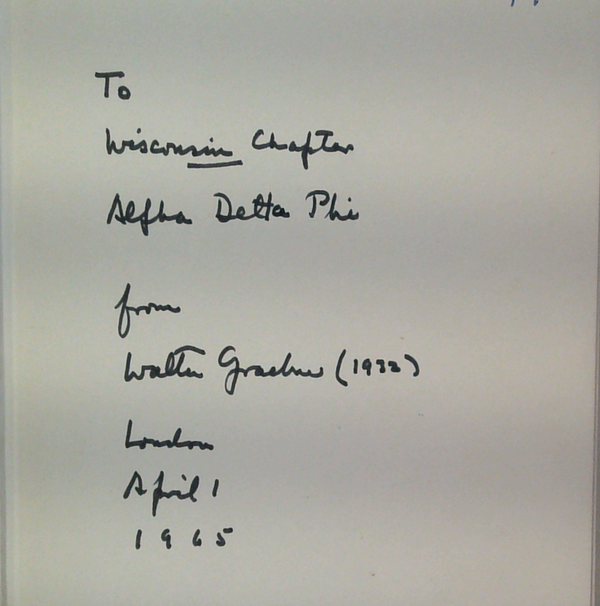 To
Wisconsin Chapter
Alpha Delta Phi
from
Walter Graebner (1932)
London
April 1
1965